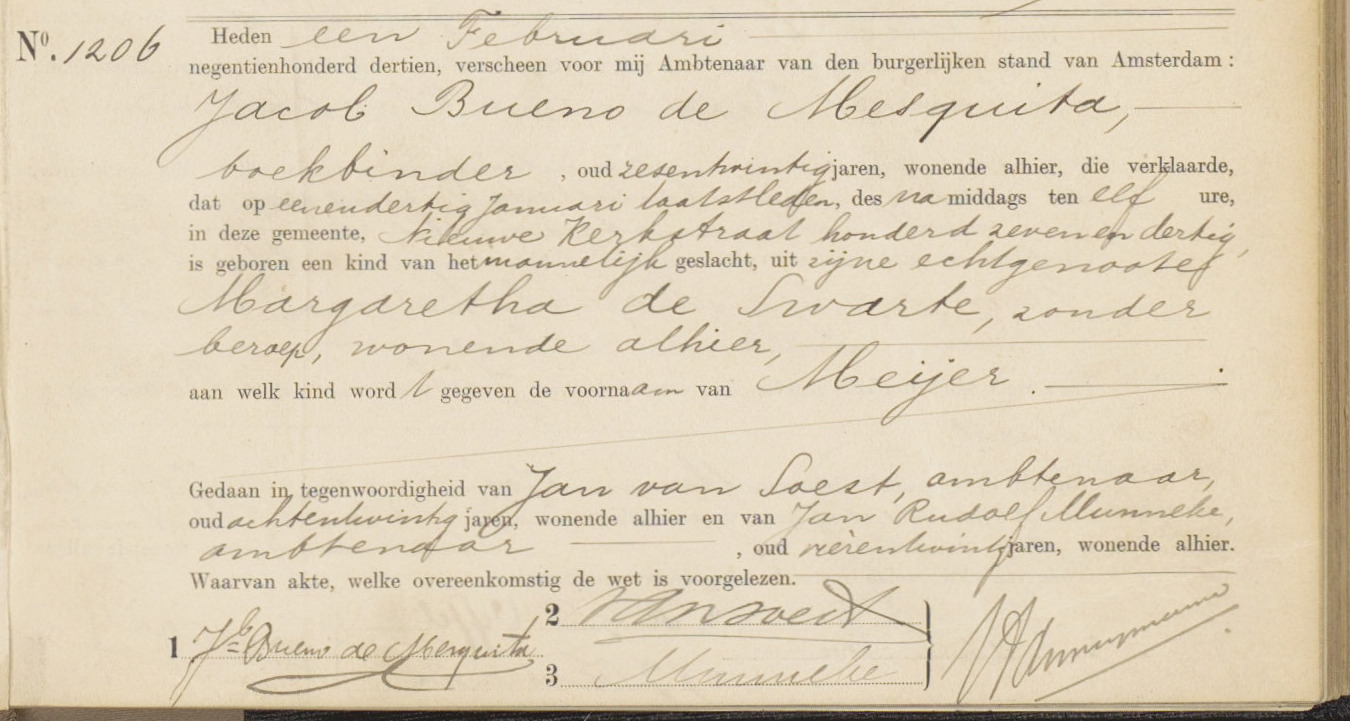 No. 1206
Heden een Februari
negentienhonderd dertien, verscheen voor mij Ambtenaar van den burgerlijken stand van Amsterdam:
Jacob Bueno de Mesquita,
boekbinder, oud zesentwintig jaren, wonende alhier, die verklaarde,
dat op eenendertig Januari laatstleden, des namiddags ten elf ure,
in deze gemeente, Nieuwe Kerkstraat honderd zevenen dertig,
is geboren een kind van het mannelijk geslacht, uit zijne echtgenoote
Margaretha de Swarte, zonder
beroep, wonende alhier,
aan welk kind wordt gegeven de voornaam van Meijer.
Gedaan in tegenwoordigheid van Jan van Soest, ambtenaar,
oud achtentwintig jaren, wonende alhier en van Jan Rudolf Munneke,
ambtenaar, oud vierentwintig jaren, wonende alhier.
Waarvan akte, welke overeenkomstig de wet is voorgelezen.
2 van Soest
1 Jb Bueno de Mesquita
3 Munneke